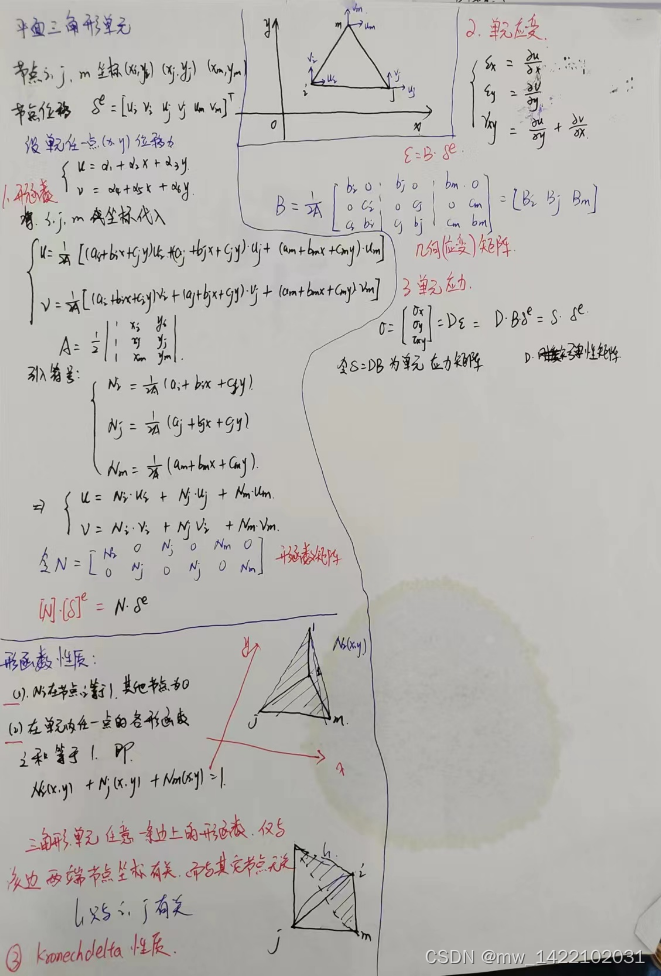 平面三角形单元
节点 i, j, m 坐标(xi,yi) (xj,yj) (xm,ym)
节点位移 δᵉ = [ui vi uj vj um vm]ᵀ
设单元任一点(x,y)位移为
u = α₁ + α₂x + α₃y
v = α₄ + α₅x + α₆y
1. 形函数
i, j, m 坐标代入
u = 1/2A [(ai+bix+ciy)ui + (aj+bjx+cjy)·uj + (am+bmx+cmy)·um]
v = 1/2A [(ai+bix+ciy)vi + (aj+bjx+cjy)·vj + (am+bmx+cmy)vm]
A = 1/2 | 1 xi yi
1 xj yj
1 xm ym |
引入符号:
Ni = 1/2A (ai+bix+ciy)
Nj = 1/2A (aj+bjx+cjy)
Nm = 1/2A (am+bmx+cmy).
⇒ u = Ni·ui + Nj·uj + Nm·um.
v = Ni·vi + Nj vj + Nm·vm.
令 N = [ Ni 0 Nj 0 Nm 0
0 Nj 0 Nj 0 Nm ] 形函数矩阵
[N]·[δ]ᵉ = N·δᵉ
y
x
0
i
j
m
vi
ui
vj
uj
vm
um
2. 单元应变.
εx = ∂u/∂x
εy = ∂v/∂y
γxy = ∂u/∂y + ∂v/∂x
ε = B·δᵉ
B = 1/2A [ bi 0 | bj 0 | bm 0
0 ci | 0 cj | 0 cm
ci bi | cj bj | cm bm ] = [Bi Bj Bm]
几何(应变)矩阵.
3 单元应力.
σ = [ σx
σy
τxy ] = Dε = D·Bδᵉ = S·δᵉ
令S=DB 为单元应力矩阵
D. 弹性矩阵
形函数性质:
(1). Ni在节点i等于1, 其他节点为0
(2) 在单元内任一点的各形函数
之和等于1. 即.
Ni(x,y) + Nj(x,y) + Nm(x,y) = 1.
y
x
Ni(x,y)
1
i
j
m
三角形单元任意一条边上的形函数, 仅与
该边两端节点坐标有关, 而与其它节点无关
l₁只与 i, j 有关
③ Kronechdelta 性质.
l₁
i
j
m
CSDN @mw_1422102031